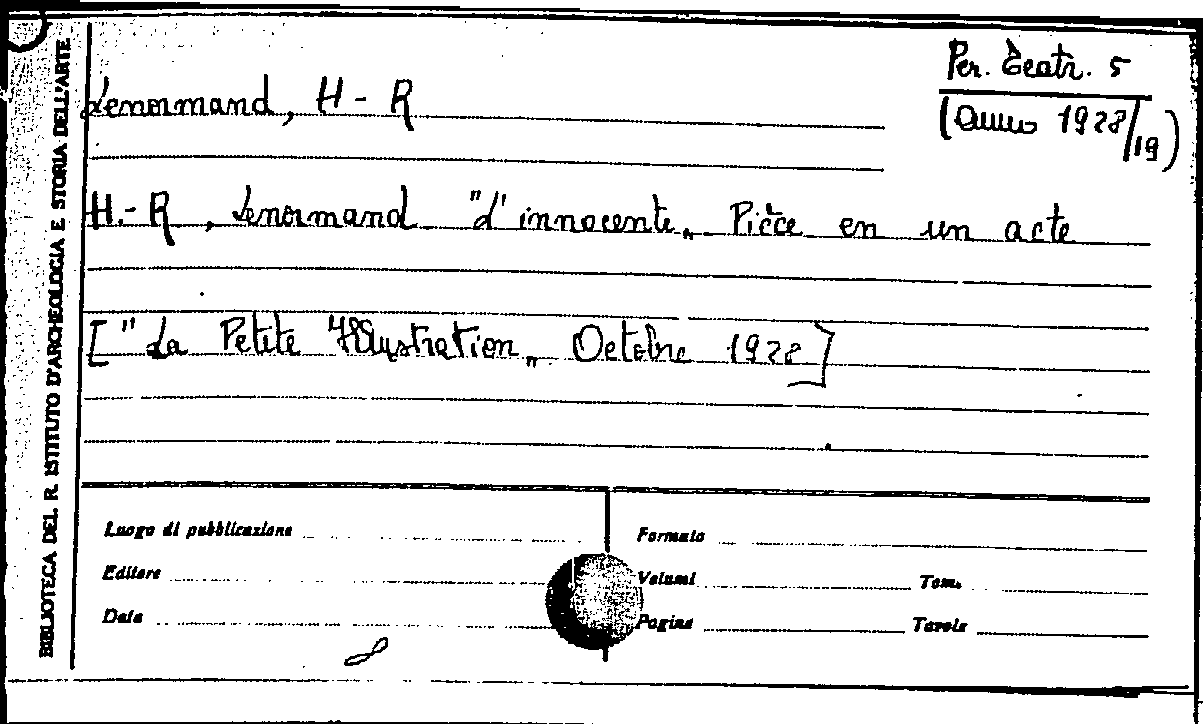 Per. Teatr. 5
(Anno 1928/19)
Lenormand, H-R
H.-R, Lenormand "L'innocente„ Pièce en un acte
["La Petite Illustration„ Octobre 1928]
BIBLIOTECA DEL R. ISTITUTO D'ARCHEOLOGIA E STORIA DELL'ARTE
Luogo di pubblicazione
Formato
Editore
Volumi
Tom.
Data
Pagine
Tavole